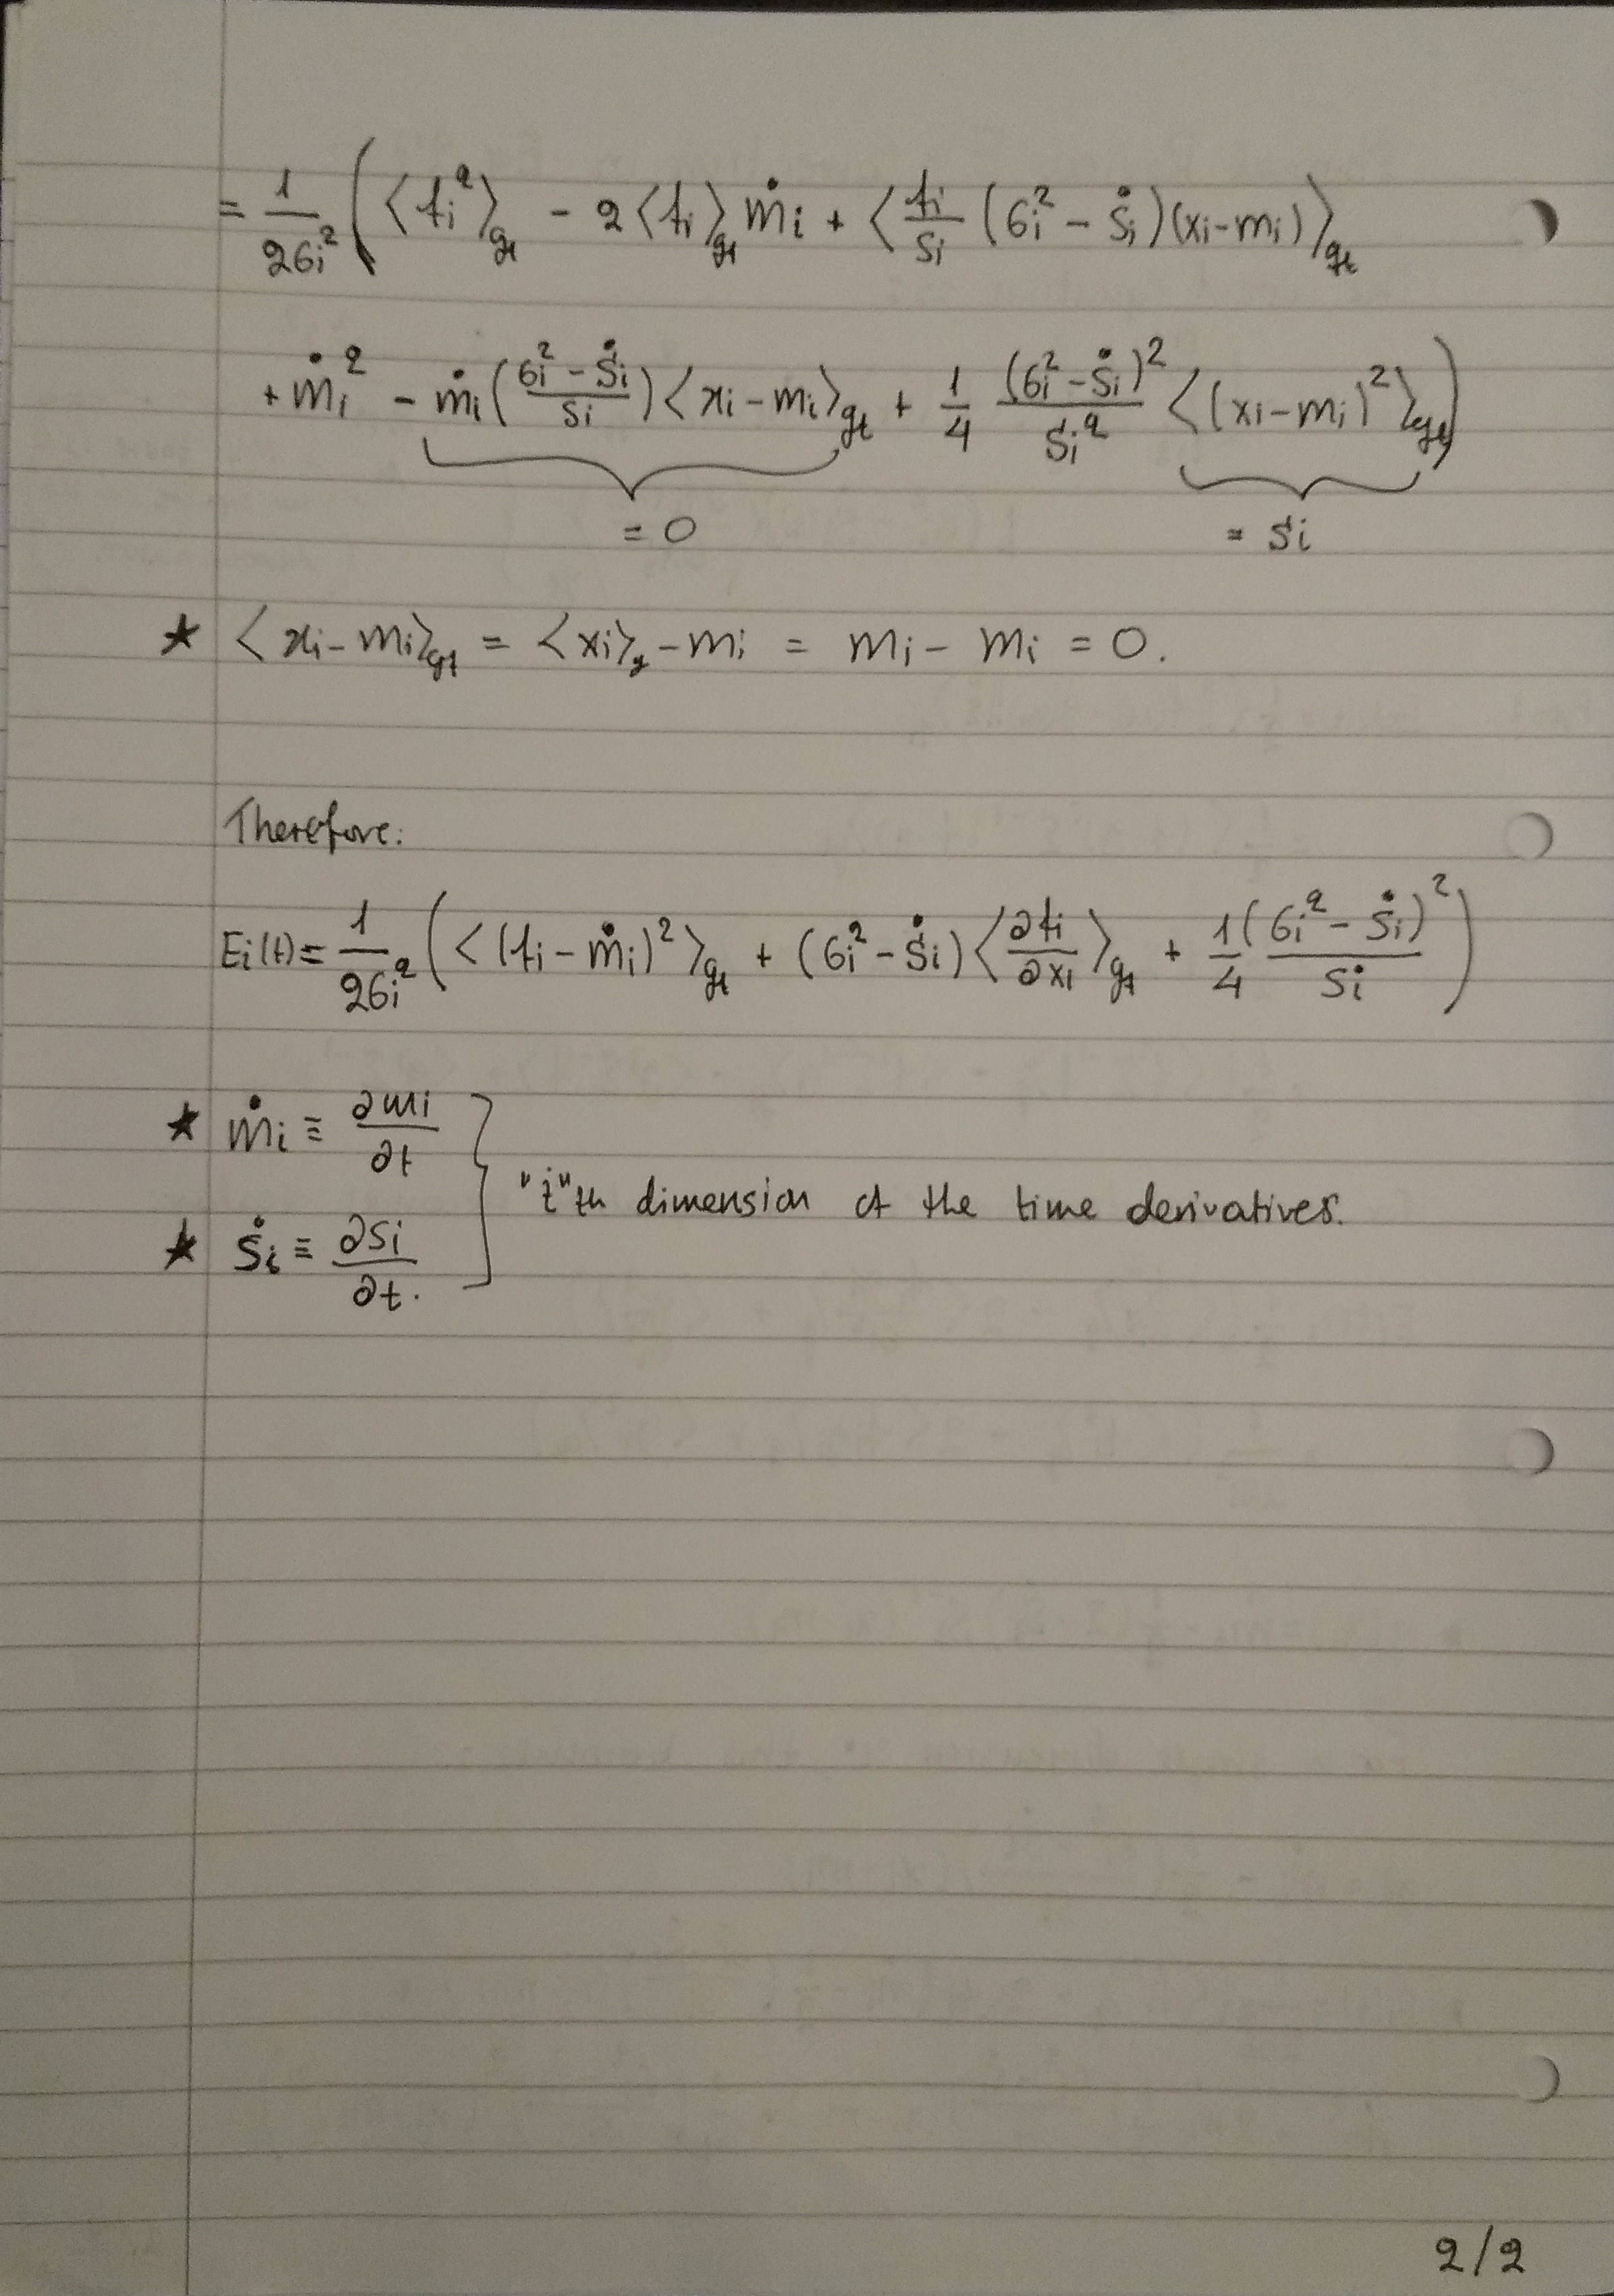 = 1/(2σi²) ( ⟨fi²⟩qt - 2⟨fi⟩qt ṁi + ⟨ fi/si (σi² - ṡi)(xi-mi) ⟩qt
+ ṁi² - ṁi ( (σi² - ṡi)/si ) ⟨xi - mi⟩qt + 1/4 (σi² - ṡi)²/si² ⟨(xi-mi)²⟩qt )
= 0 = si
★ ⟨xi - mi⟩qt = ⟨xi⟩q - mi = mi - mi = 0.
Therefore:
Ei(t) = 1/(2σi²) ( ⟨(fi - ṁi)²⟩qt + (σi² - ṡi) ⟨∂fi/∂xi⟩qt + 1/4 (σi² - ṡi)²/si )
★ ṁi ≡ ∂mi/∂t
"i"th dimension of the time derivatives.
★ ṡi ≡ ∂si/∂t.
2/2